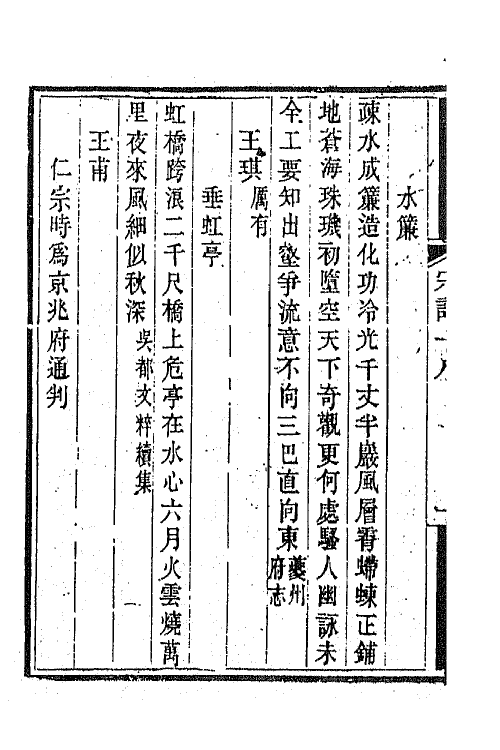 水簾
疎水成簾造化功冷光千丈半巖風層霄螮蝀正鋪
地蒼海珠璣初墮空天下奇觀更何處騷人幽詠未
全工要知出壑爭流意不向三巴直向東夔州府志
王琪厲有
垂虹亭
虹橋跨浪二千尺橋上危亭在水心六月火雲燒萬
里夜來風細似秋深吳都文粹續集
王甫
仁宗時爲京兆府通判